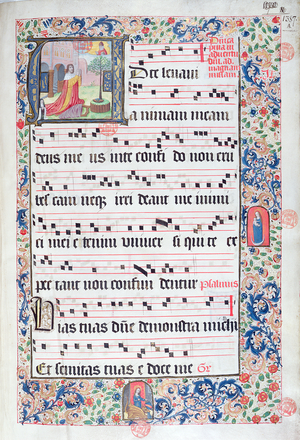 prima in
aduentu
dni. ad
magnam
missam.
AD te leuaui
animam meam
deus me us in te confi do non eru
bes cam neqz irri deant me inimi
ci mei etenim vniuer si qui te ex
pec tant non confun dentur Psalmus
Vias tuas dñe demonstra michi
Et semitas tuas e doce me Gr